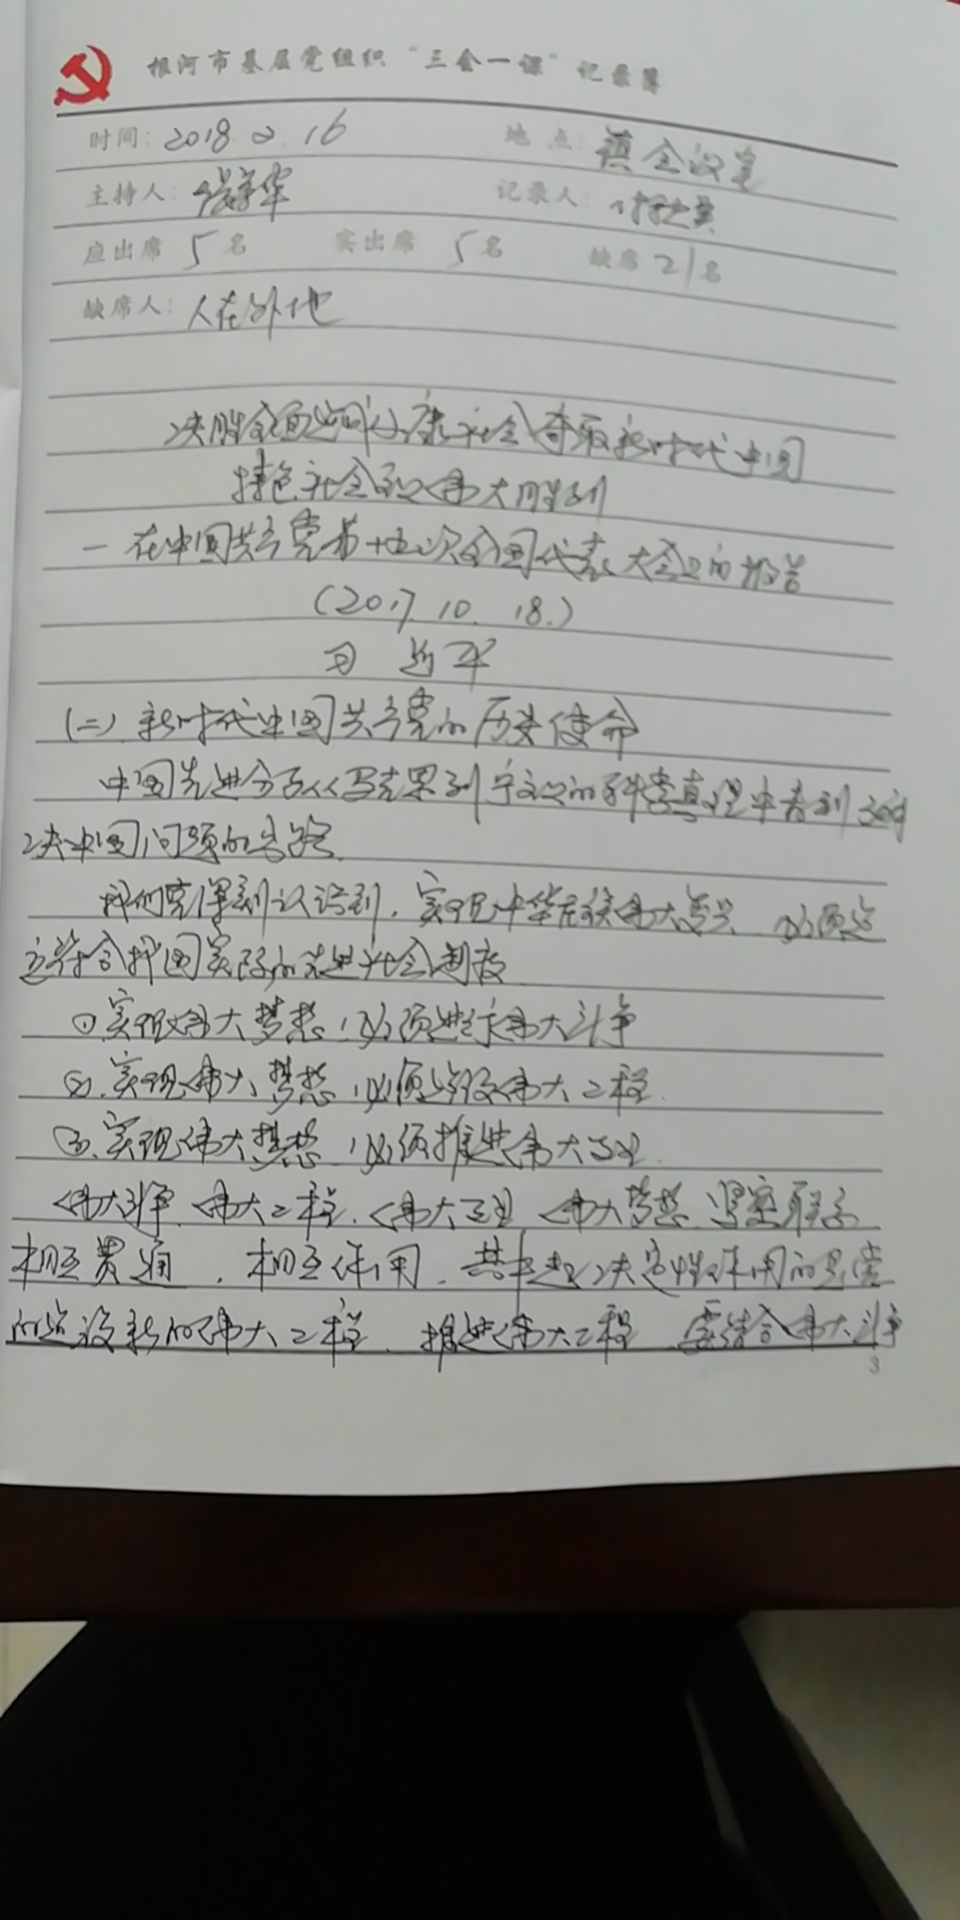 根河市基层党组织“三会一课”记录簿
时间：2018.2.16 地点：镇会议室
主持人： 华 记录人：
应出席 5名 实出席 5名 缺席21名
缺席人：人在外地
决胜全面建成小康社会夺取新时代中国
特色社会主义伟大胜利
一在中国共产党第十九次全国代表大会上的报告
（2017.10.18.）
习近平
（二）新时代中国共产党的历史使命
中国先进分子从马克思列宁主义的科学真理中看到了解
决中国问题的出路
我们党深刻认识到，实现中华民族伟大复兴 必须建
立符合我国实际的先进社会制度
①实现伟大梦想，必须进行伟大斗争
②.实现伟大梦想，必须建设伟大工程.
③.实现伟大梦想，必须推进伟大事业
伟大斗争.伟大工程.伟大事业 伟大梦想 紧密联系
相互贯通，相互作用.其中起决定性作用的是党
的建设新的伟大工程.推进伟大工程 要结合伟大斗争
3